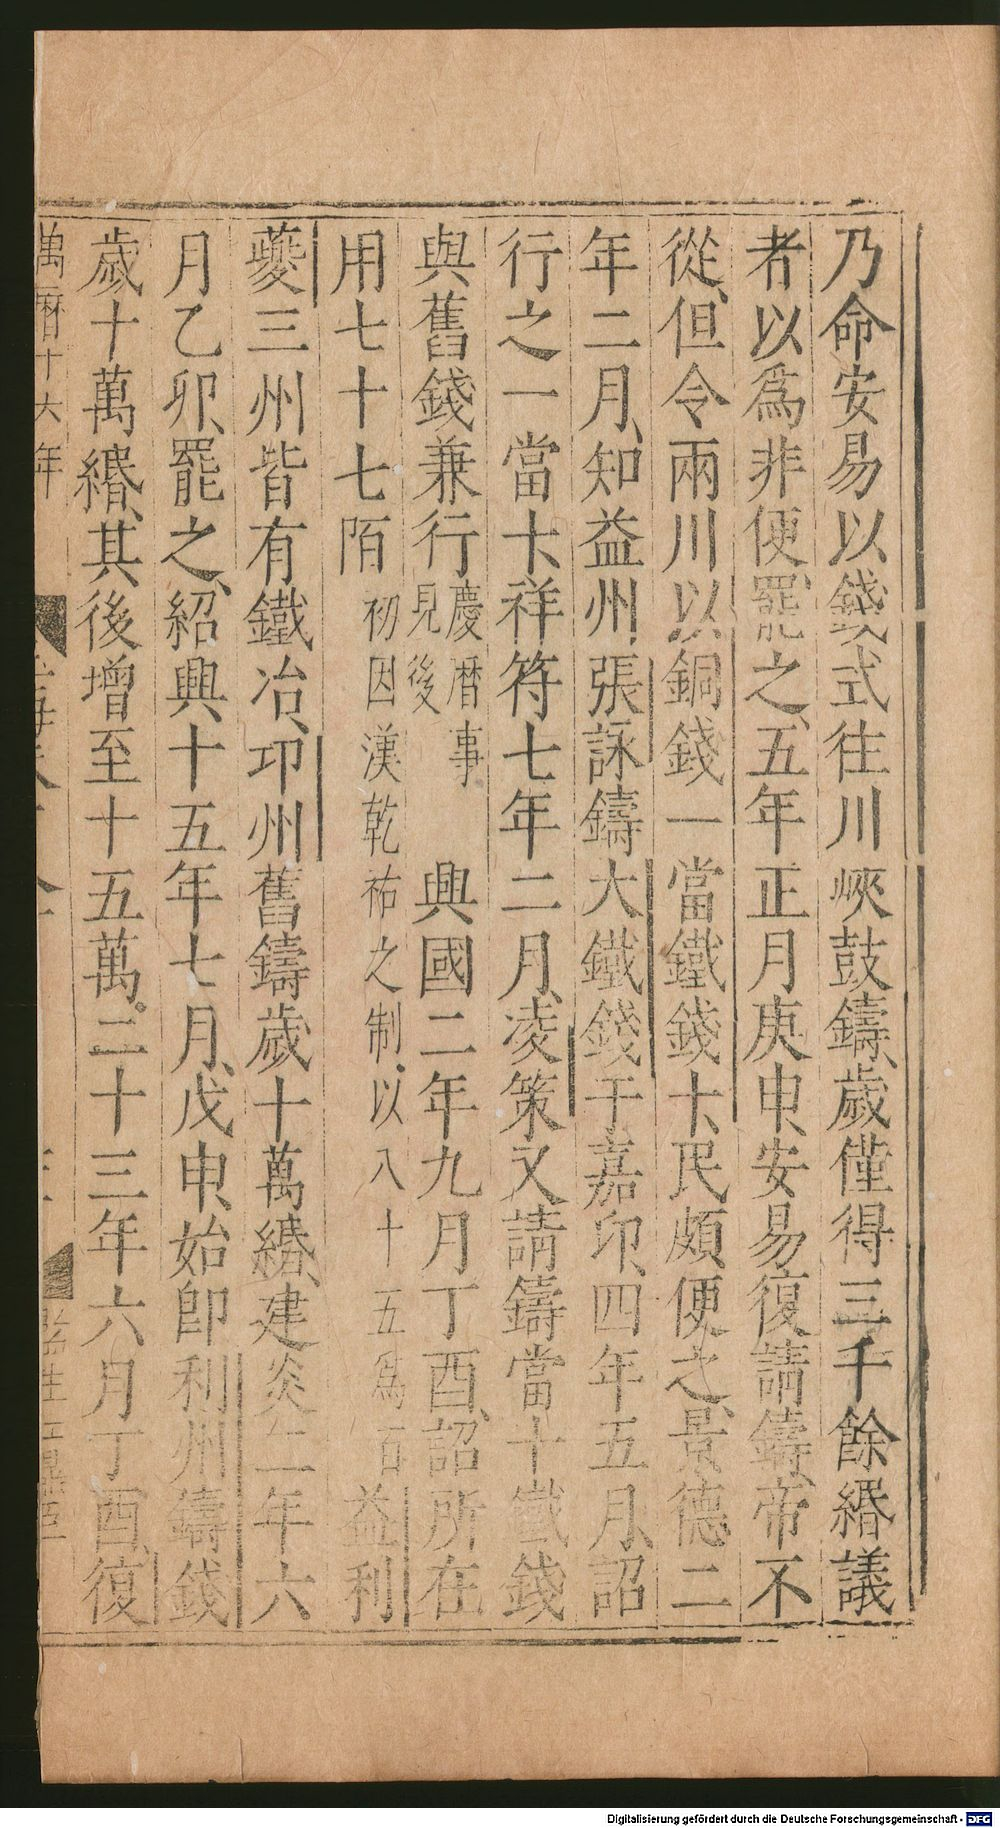 乃命安易以錢式往川峽鼓鑄、歲僅得三千餘緡議
者以為非便、罷之、五年正月庚申、安易復請鑄、帝不
從、但令兩川以銅錢一當鐵錢十、民頗便之、景德二
年二月、知益州張詠鑄大鐵錢于嘉卭、四年五月、詔
行之一當十祥符七年二月、凌策又請鑄當十鐵錢
與舊錢兼行慶曆事見後 興國二年九月丁酉、詔所在
用七十七陌初因漢乾祐之制、以八十五為百益利
夔三州皆有鐵冶、卭州舊鑄歲十萬緡、建炎二年六
月乙卯、罷之、紹興十五年七月、戊申、始即利州鑄錢
歲十萬緡、其後增至十五萬。二十三年六月丁酉、復
萬曆十六年
Digitalisierung gefördert durch die Deutsche Forschungsgemeinschaft - DFG